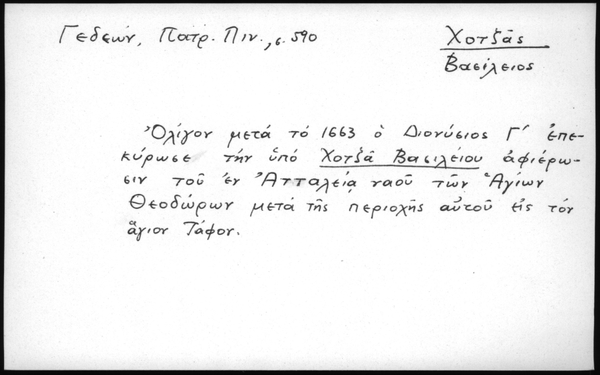 Γεδεών, Πατρ. Πιν., σ. 590
Χοτζᾶς
Βασίλειος
Ὀλίγον μετά τό 1663 ὁ Διονύσιος Γ΄ ἐπε-
κύρωσε τήν ὑπό Χοτζᾶ Βασιλείου ἀφιέρω-
σιν τοῦ ἐν Ἀτταλείᾳ ναοῦ τῶν Ἁγίων
Θεοδώρων μετά τῆς περιοχῆς αὐτοῦ εἰς τόν
ἅγιον Τάφον.